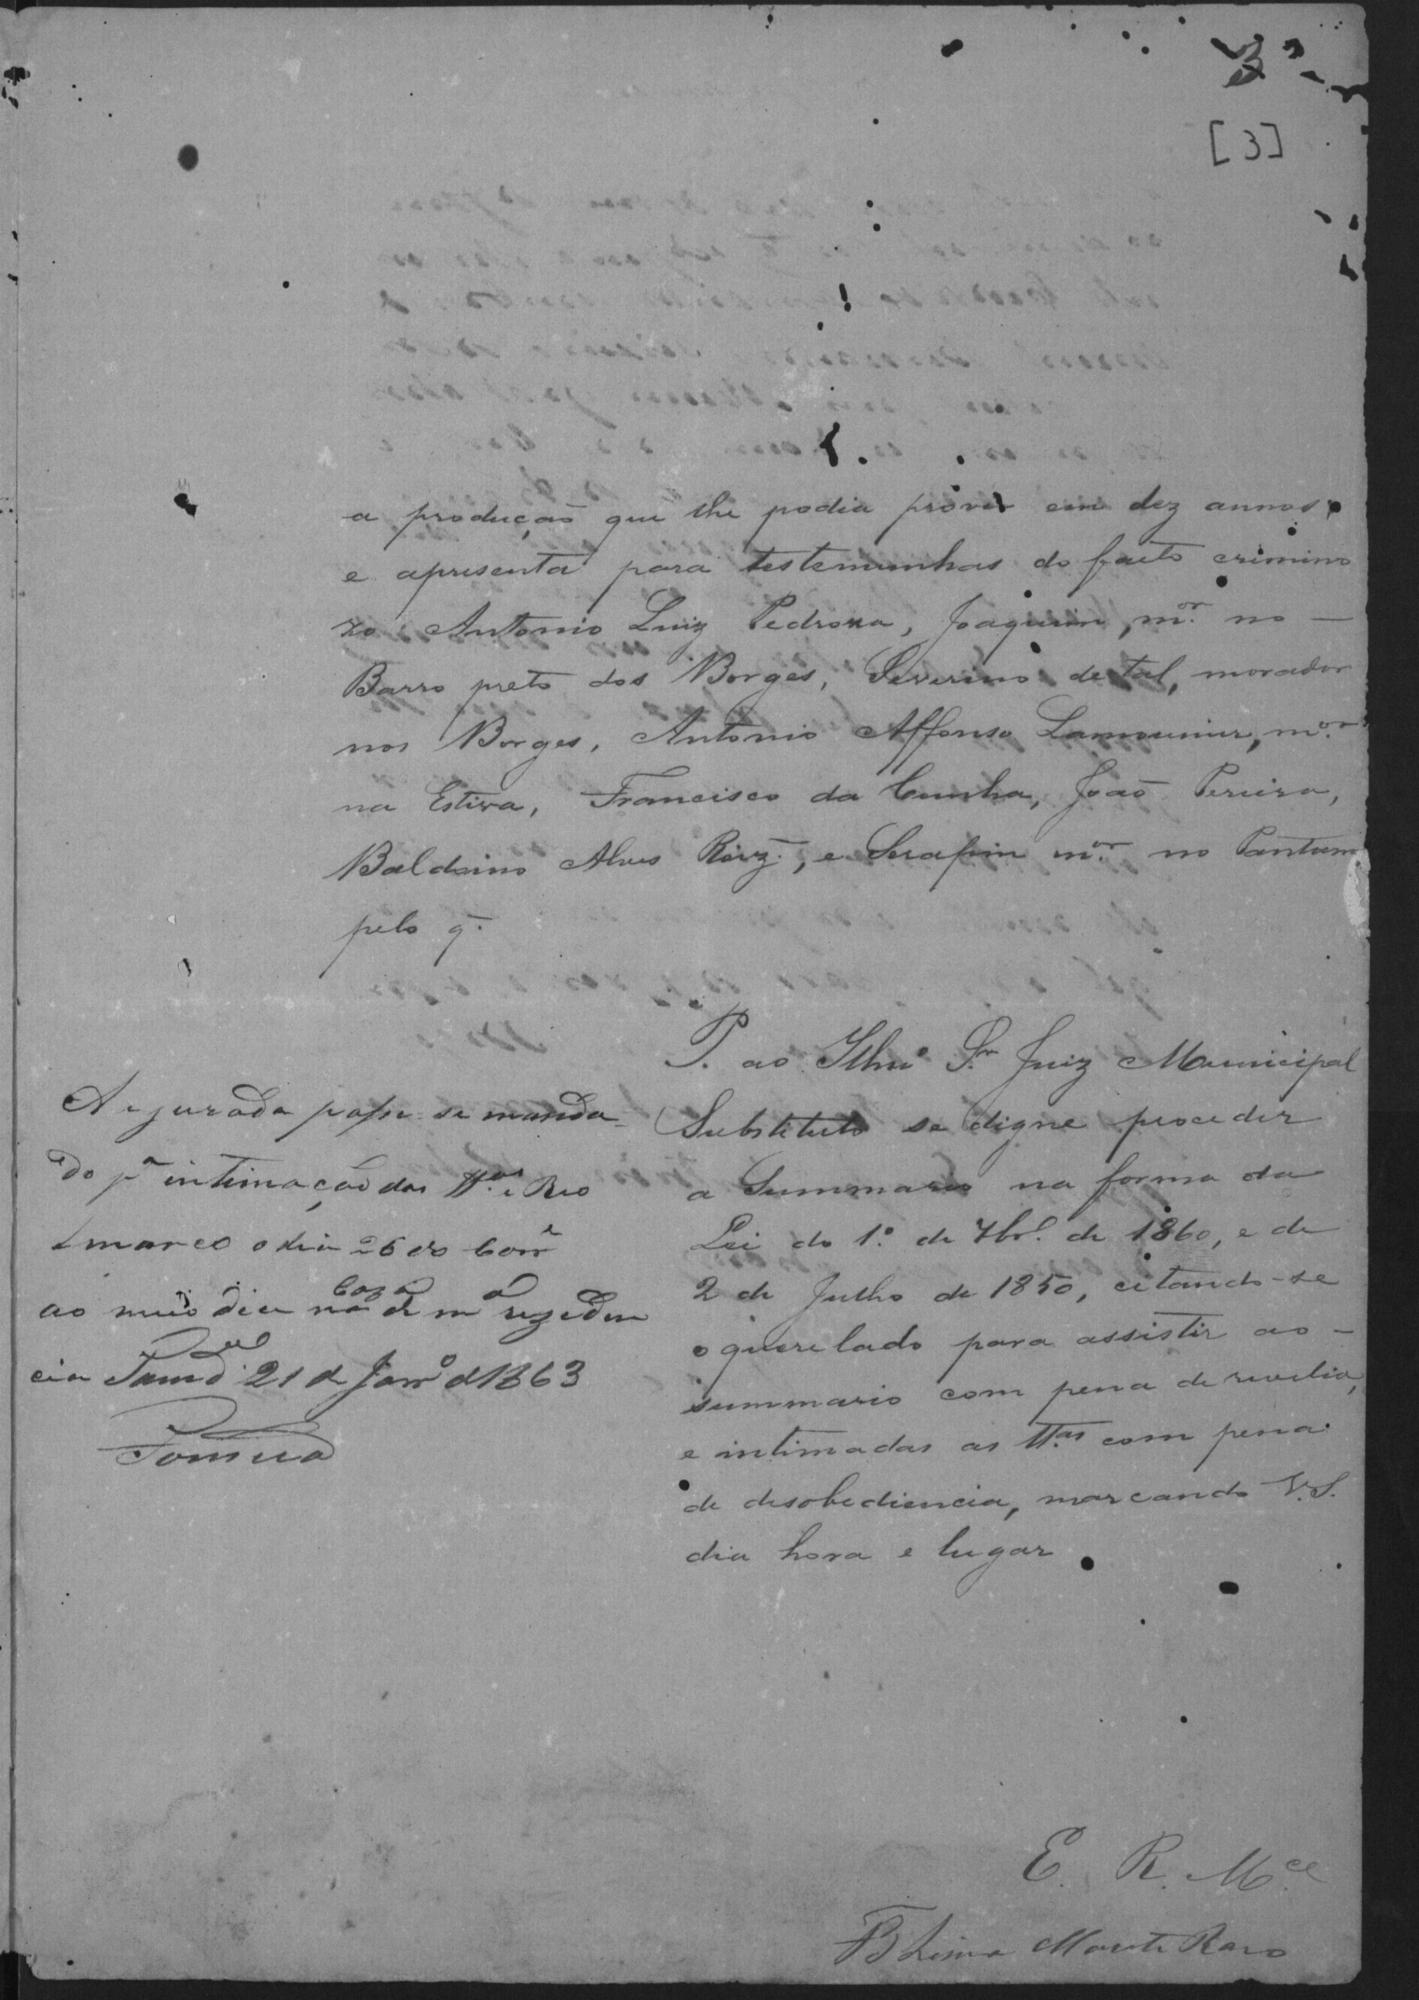 3
[3]
a producção que lhe podia provir em dez annos,
e apresenta para testemunhas do faito crimino
zo Antonio Luiz Pedroza, Joaquim, m.or no —
Barro preto dos Borges, Severino de tal, morador
nos Borges, Antonio Affonso Lamounier, m.or
na Estiva, Francisco da Cunha, João Pereira,
Baldoino Alves , e Serafim m.or no Pantano
pelo q.
P. ao Illm.o S.r Juiz Municipal
Substituto se digne proceder
a Summario na forma da
Lei do 1.º de 7br.º de 1860, e de
2 de Julho de 1850, citando-se
o querelado para assistir ao —
summario com pena de revelia,
e intimadas as tt.as com pena
de desobediencia, marcando V.S.
dia hora e lugar
A e jurada passe-se manda
do p.a intimação das tt.as e Reo
marco o dia 26 do Corr.e
ao meio dia na Caza de m.a rezeden
cia 21 de Janr.o d 1863
E. R. M.ce
B Lima Monte Raro